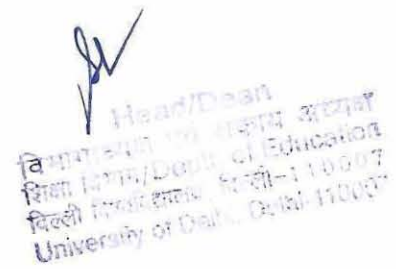 Head/Dean
विभागाध्यक्ष एवं संकाय अध्यक्ष
शिक्षा विभाग/Deptt. of Education
दिल्ली विश्वविद्यालय दिल्ली-110007
University of Delhi, Delhi-110007